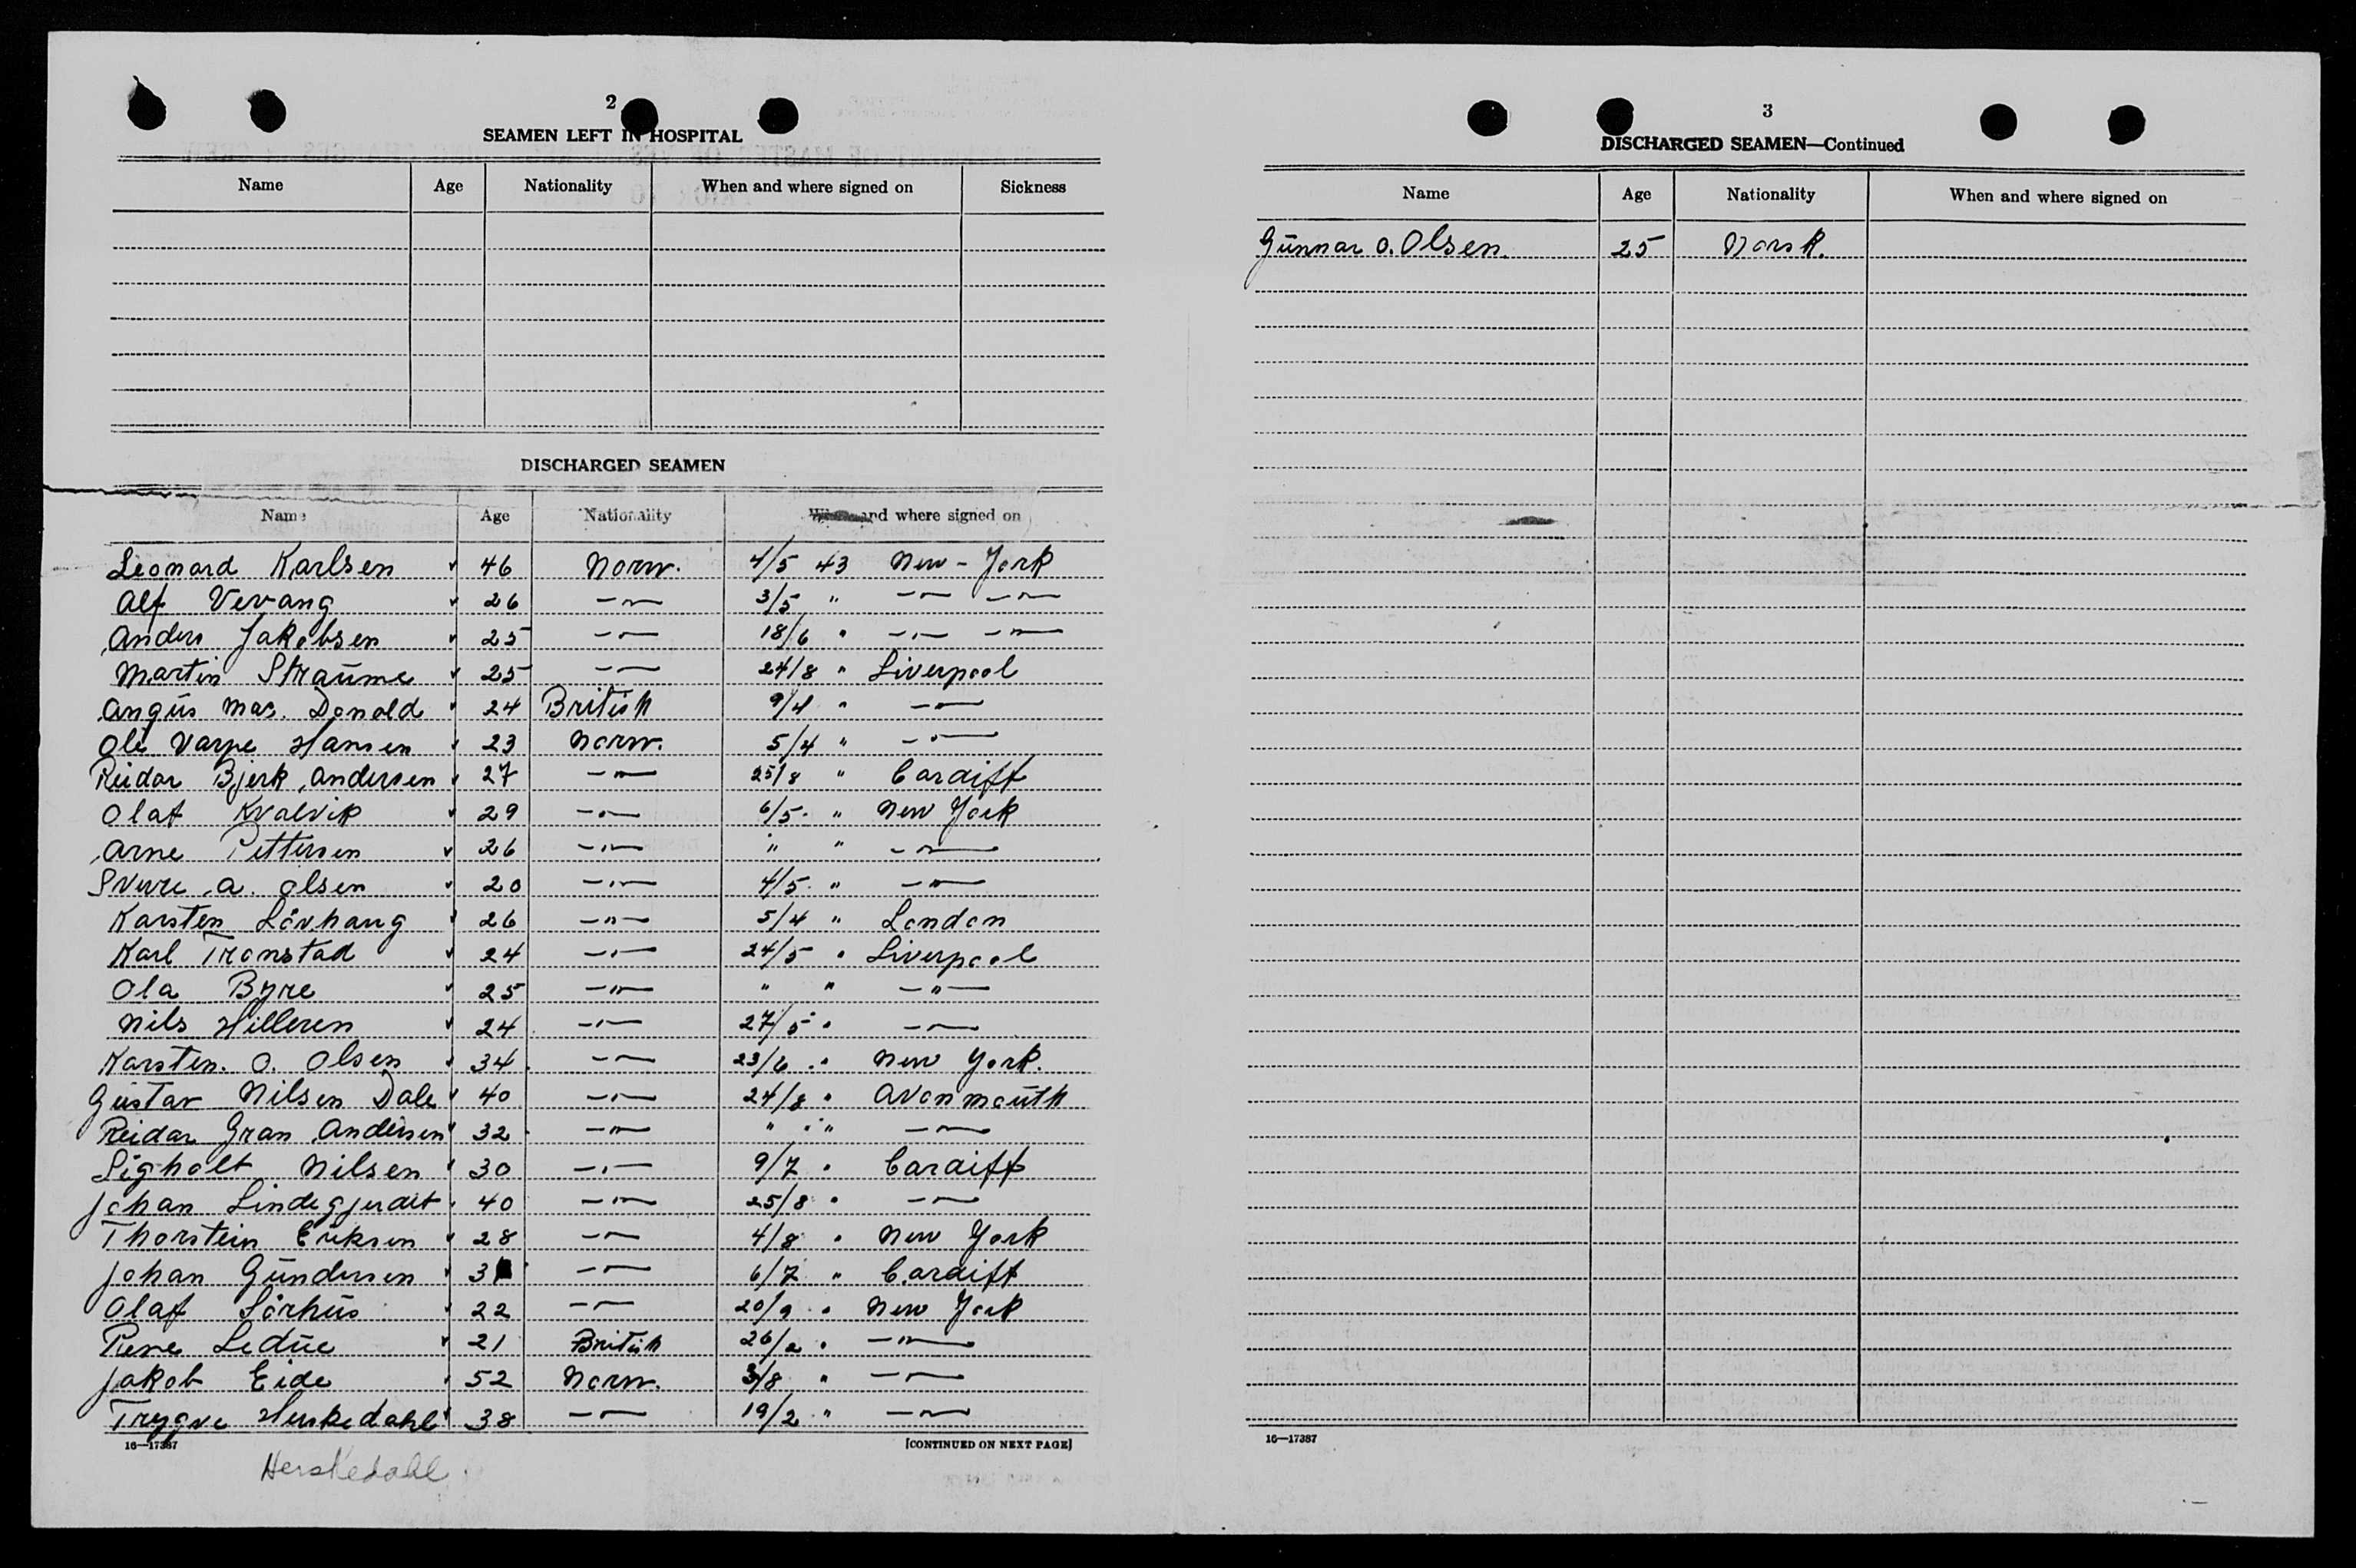 2
SEAMEN LEFT IN HOSPITAL
Name Age Nationality When and where signed on Sickness
DISCHARGED SEAMEN
Name Age Nationality and where signed on
Leonard Karlsen ✓ 46 Norw. 4/5 43 New-York
Alf Vevang ✓ 26 —"— 3/5 " —"— —"—
Anders Jakobsen ✓ 25 —"— 18/6 " —"— —"—
Martin Straume ✓ 25 —"— 24/8 " Liverpool
Angus Mac. Donald ✓ 24 British 9/4 " —"—
Ole Varpe Hansen ✓ 23 Norw. 5/4 " —"—
Reidar Bjerk Andersen ✓ 27 —"— 25/8 " Cardiff
Olaf Kvalvik ✓ 29 —"— 6/5. " New York
Arne Pettersen ✓ 26 —"— " " —"—
Sverre A. Olsen ✓ 20 —"— 4/5. " —"—
Karsten Lövhaug ✓ 26 —"— 5/4 " London
Karl Tronstad ✓ 24 —"— 24/5 " Liverpool
Ola Byre ✓ 25 —"— " " —"—
Nils Hilleren ✓ 24 —"— 27/5 " —"—
Karsten. O. Olsen ✓ 34 —"— 23/6 " New York.
Gustav Nilsen Dale ✓ 40 —"— 24/8 " Avonmouth
Reidar Gran Andersen ✓ 32 —"— " " —"—
Sigholt Nilsen ✓ 30 —"— 9/7 " Cardiff
Johan Lindegjerdet ✓ 40 —"— 25/8 " —"—
Thorstein Eriksen ✓ 28 —"— 4/8 " New York
Johan Gundersen ✓ —"— 6/7 " Cardiff
Olaf Sörhus ✓ 22 —"— 20/9 " New York
Rene Leduc ✓ 21 British 26/2 " —"—
Jakob Eide ✓ 52 Norw. 3/8 " —"—
Trygve Herskedahl ✓ 38 —"— 19/2 " —"—
16—17387 [CONTINUED ON NEXT PAGE]
Herskedahl.
3
DISCHARGED SEAMEN—Continued
Name Age Nationality When and where signed on
Gunnar O. Olsen. 25 Norsk.
16—17387